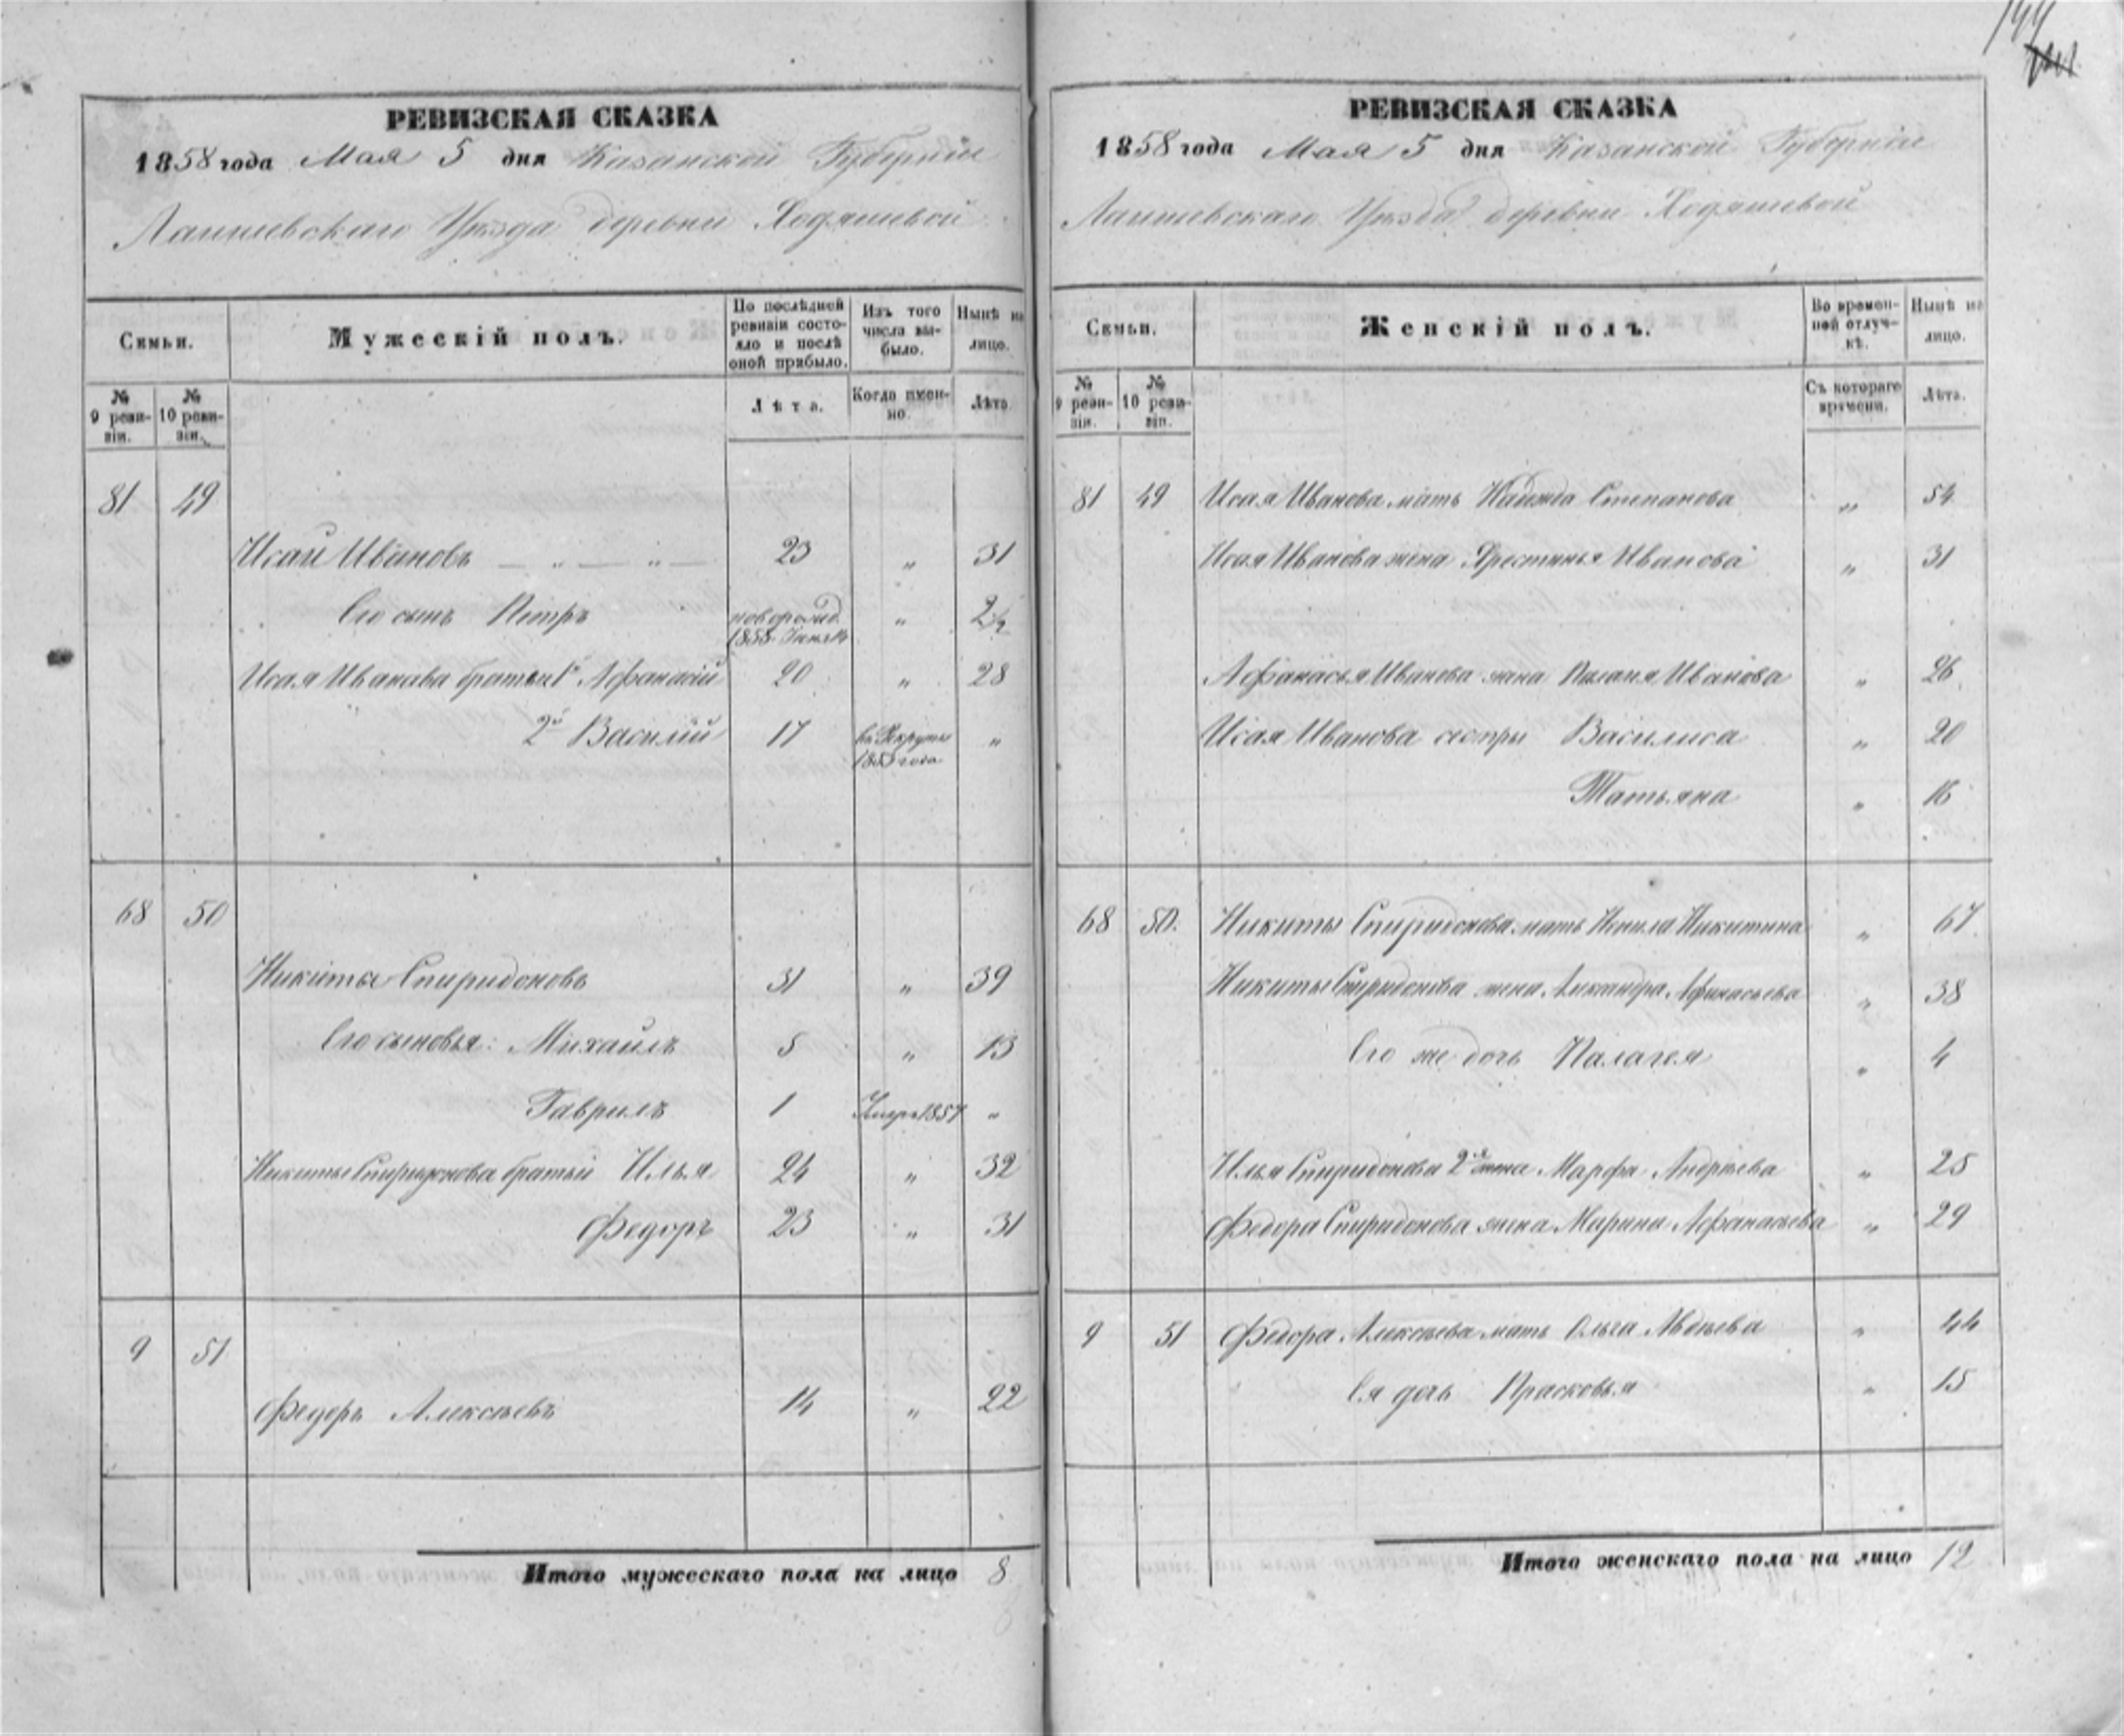 РЕВИЗСКАЯ СКАЗКА
1858 года Мая 5 дня Казанской Губернии
Лаишевскаго Уѣзда деревни Ходяшевой
Семьи.
Мужескій полъ.
По послѣдней ревизіи состояло и послѣ оной прибыло.
Изъ того числа выбыло.
Нынѣ на лицо.
№ 9 ревизіи.
№ 10 ревизіи.
Лѣта.
Когда именно.
Лѣта.
81 49
Исай Ивановъ 23 „ 31
Его сынъ Петръ новорожд. 1855 „ 2½
Исая Иванова братья 1й Афанасій 20 „ 28
2й Василій 17 въ Рекруты 1855 года „
68 50
Никита Спиридоновъ 31 „ 39
Его сыновья: Михаилъ 5 „ 13
Гаврилъ 1 Умеръ 1857 „
Никиты Спиридонова братья Илья 24 „ 32
Федоръ 23 „ 31
9 51
Федоръ Алексѣевъ 14 „ 22
Итого мужескаго пола на лицо 8
РЕВИЗСКАЯ СКАЗКА
1858 года Мая 5 дня Казанской Губерніи
Лаишевскаго Уѣзда деревни Ходяшевой
Семьи.
Женскій полъ.
Во временной отлучкѣ.
Нынѣ на лицо.
№ 9 ревизіи.
№ 10 ревизіи.
Съ котораго времени.
Лѣта.
81 49 Исая Иванова мать Надежда Степанова „ 54
Исая Иванова жена Хрестинья Иванова „ 31
Афанасья Иванова жена Иванова „ 26
Исая Иванова сестры Василиса „ 20
Татьяна „ 16
68 50. Никиты Спиридонова мать Ненила Никитина „ 67
Никиты Спиридонова жена Афанасьева „ 38
Его же дочь Палагея „ 4
Илья Спиридонова 2я жена Марфа Андреева „ 25
Федора Спиридонова жена Марина Афанасьева „ 29
9 51 Федора Алексѣева мать Ольга Авдѣева „ 44
Ея дочь Прасковья „ 15
Итого женскаго пола на лицо 12